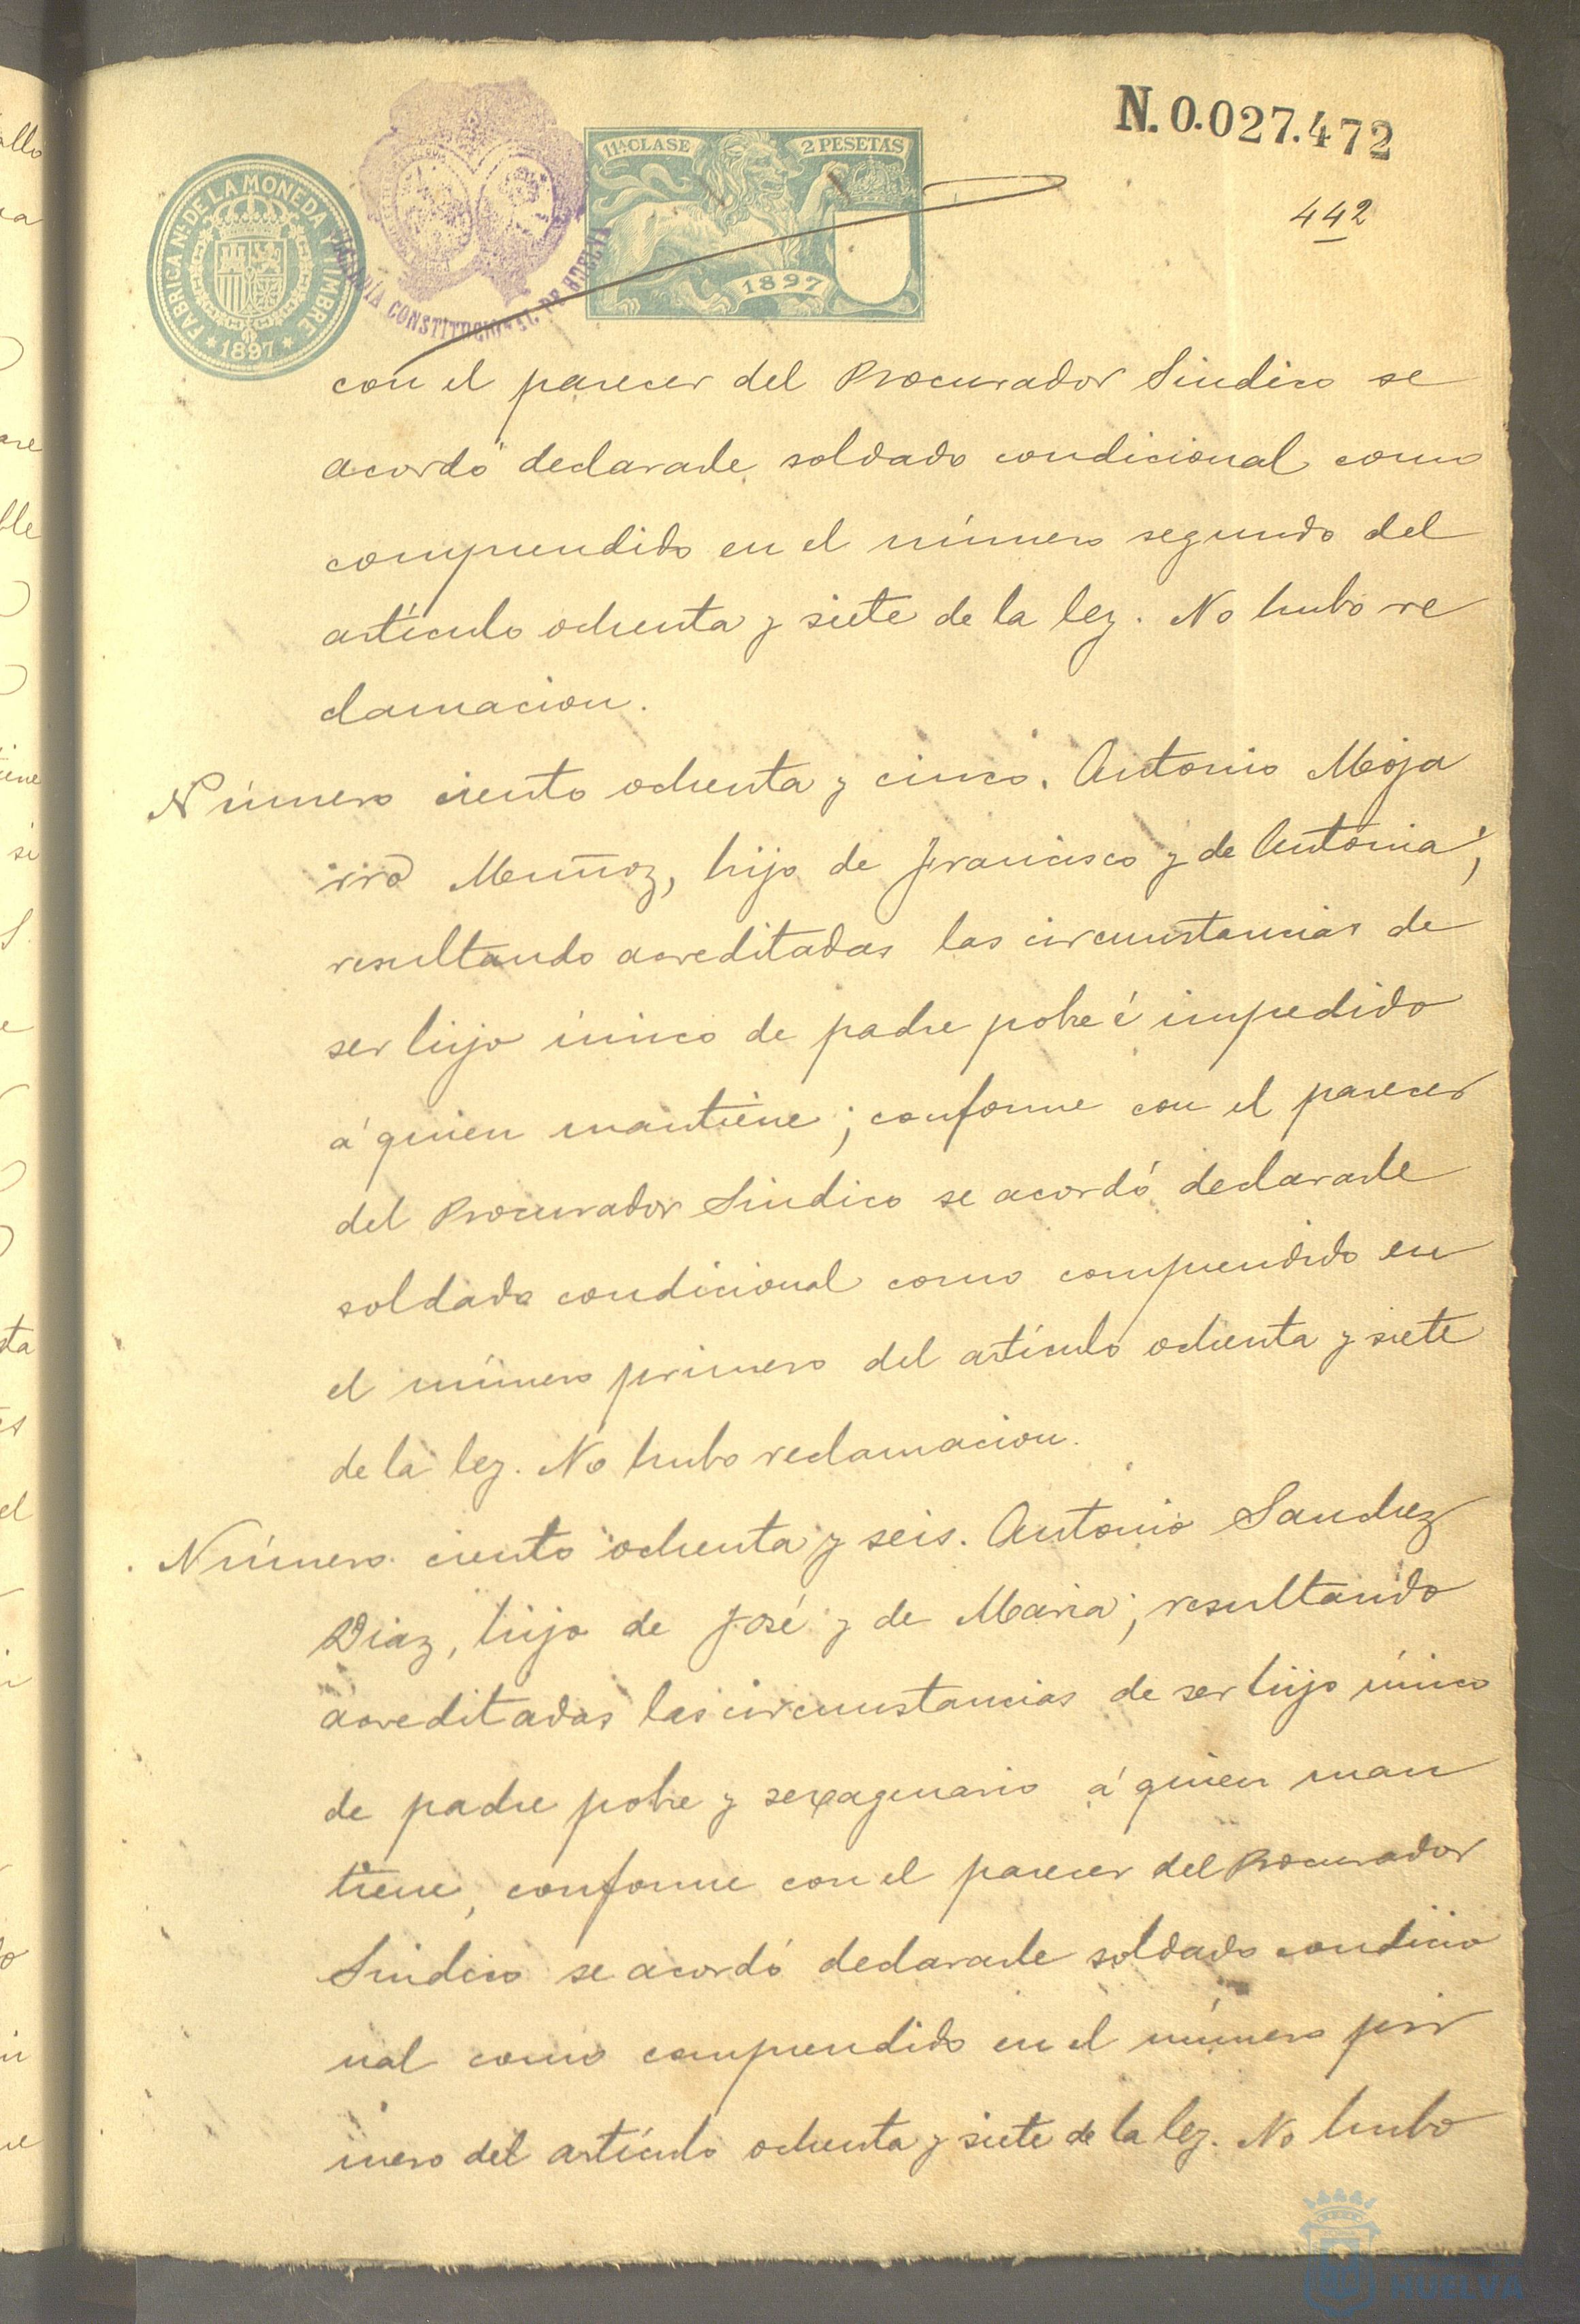 N. 0.027.472
442
FABRICA N.ᴸ DE LA MONEDA Y TIMBRE
* 1897 *
ALCALDÍA CONSTITUCIONAL DE HUELVA
11ª CLASE
2 PESETAS
1897
con el parecer del Procurador Sindico se
acordó declararle soldado condicional como
comprendido en el número segundo del
artículo ochenta y siete de la ley. No hubo re
clamacion.
Número ciento ochenta y cinco. Antonio Moja
rro Muñoz, hijo de Francisco y de Antonia;
resultando acreditadas las circunstancias de
ser hijo único de padre pobre é impedido
á quien mantiene; conforme con el parecer
del Procurador Sindico se acordó declararle
soldado condicional como comprendido en
el número primero del artículo ochenta y siete
de la ley. No hubo reclamacion.
Número ciento ochenta y seis. Antonio Sanchez
Diaz, hijo de José y de Maria; resultando
acreditadas las circunstancias de ser hijo único
de padre pobre y sexagenario á quien man
tiene, conforme con el parecer del Procurador
Sindico se acordó declararle soldado condicio
nal como comprendido en el número pri
mero del artículo ochenta y siete de la ley. No hubo
HUELVA